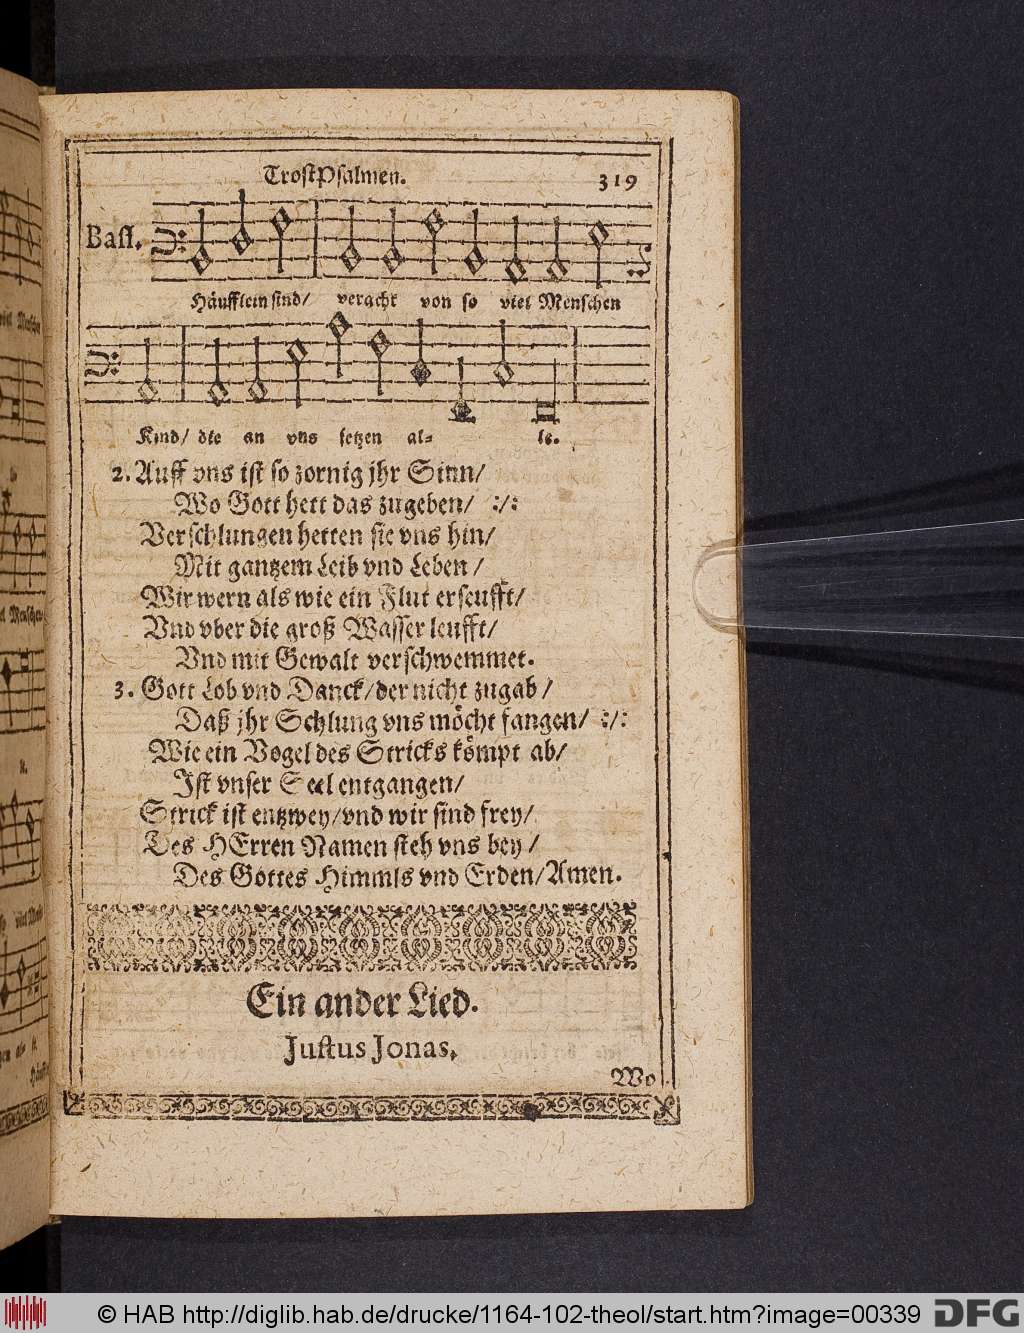 TrostPsalmen. 319
Bass.
Häufflein sind/ veracht von so viel Menschen
Kind/ die an vns setzen al-le.
2. Auff vns ist so zornig jhr Sinn/
Wo Gott hett das zugeben/ :/:
Verschlungen hetten sie vns hin/
Mit gantzem Leib vnd Leben/
Wir wern als wie ein Flut erseufft/
Vnd vber die groß Wasser leufft/
Vnd mit Gewalt verschwemmet.
3. Gott Lob vnd Danck/der nicht zugab/
Daß jhr Schlung vns möcht fangen/ :/:
Wie ein Vogel des Stricks kömpt ab/
Ist vnser Seel entgangen/
Strick ist entzwey/vnd wir sind frey/
Des HErren Namen steh vns bey/
Des Gottes Himmls vnd Erden/Amen.
Ein ander Lied.
Justus Jonas.
Wo
© HAB http://diglib.hab.de/drucke/1164-102-theol/start.htm?image=00339
DFG